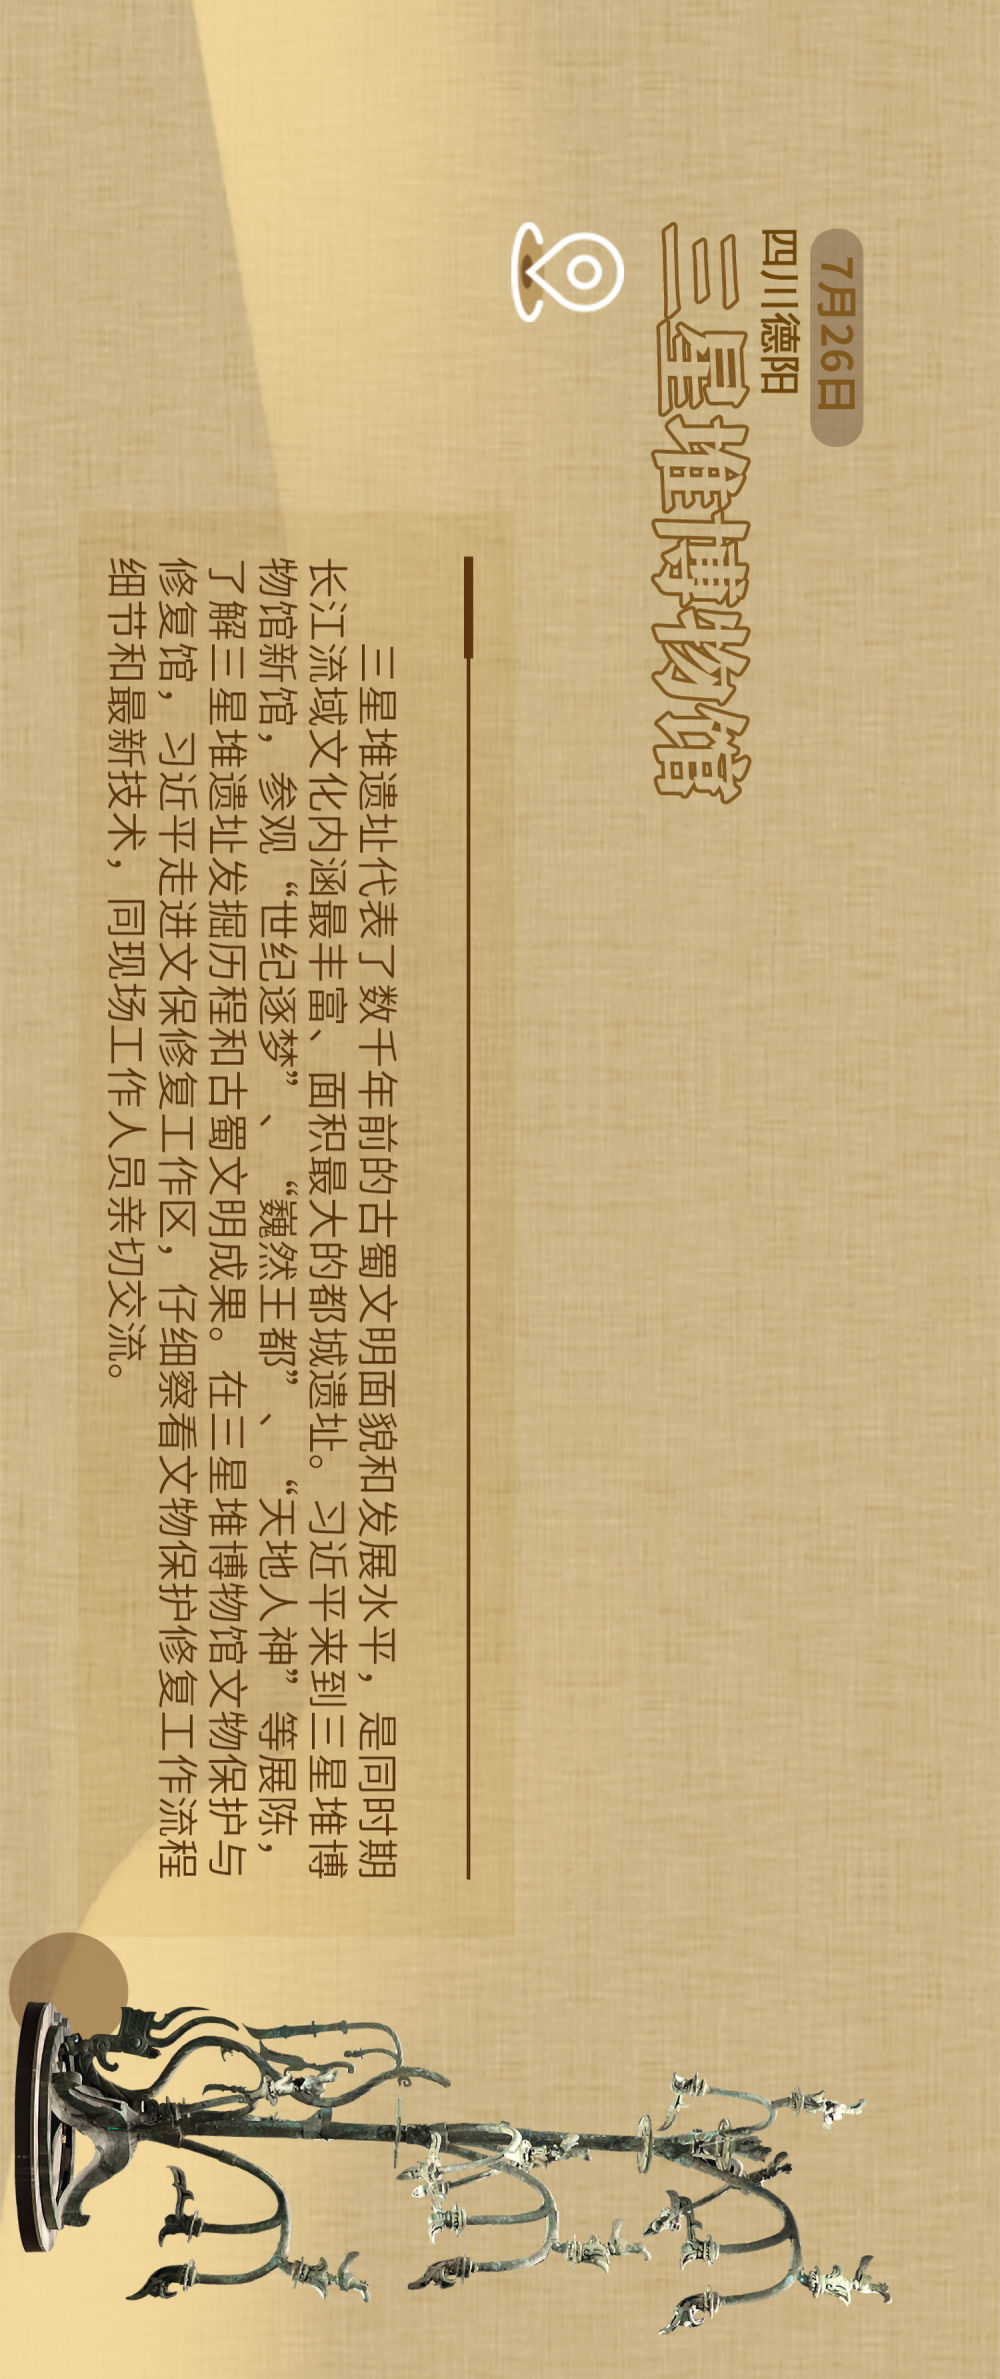 7月26日
四川德阳
三星堆博物馆
三星堆遗址代表了数千年前的古蜀文明面貌和发展水平，是同时期
长江流域文化内涵最丰富、面积最大的都城遗址。习近平来到三星堆博
物馆新馆，参观“世纪逐梦”、“巍然王都”、“天地人神”等展陈，
了解三星堆遗址发掘历程和古蜀文明成果。在三星堆博物馆文物保护与
修复馆，习近平走进文保修复工作区，仔细察看文物保护修复工作流程
细节和最新技术，同现场工作人员亲切交流。